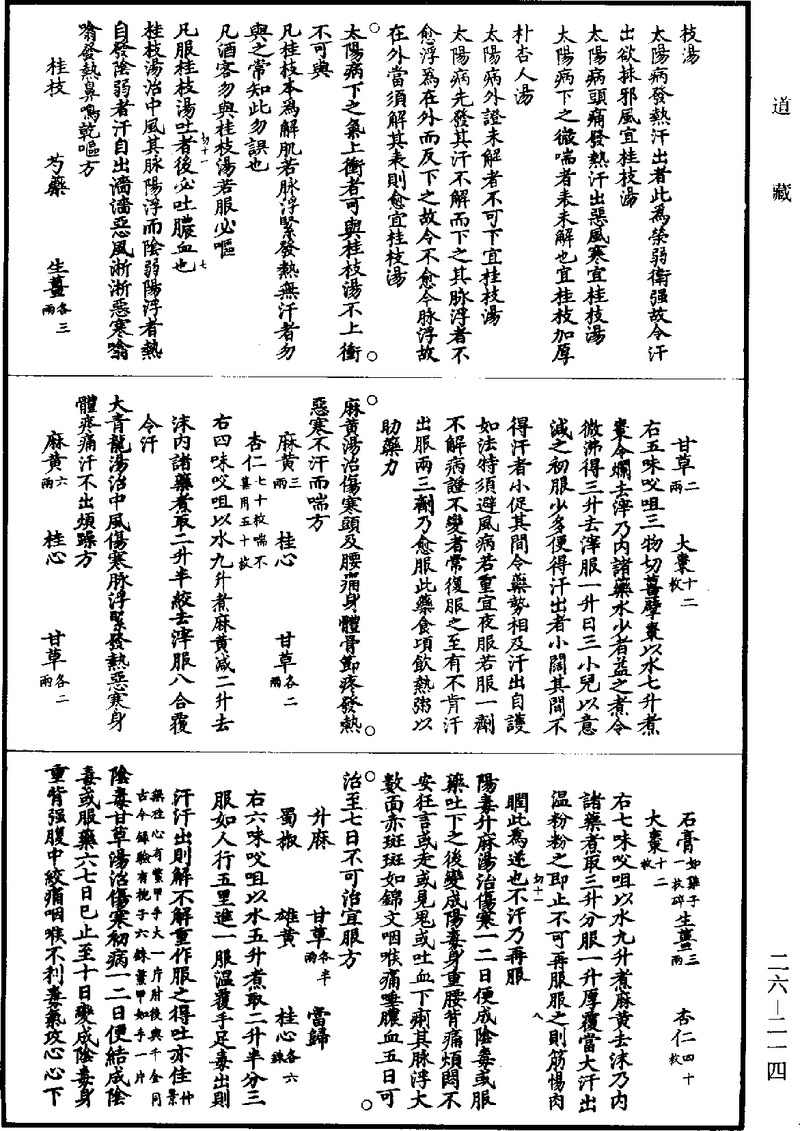 道藏
枝湯
太陽病發熱汗出者此爲榮弱衛强故令汗
出欲抹邪風宜桂枝湯
太陽病頭痛發熱汗出惡風寒宜桂枝湯
太陽病下之微喘者表未解也宜桂枝加厚
朴杏人湯
太陽病外證未解者不可下宜桂枝湯
太陽病先發其汗不解而下之其脉浮者不
愈浮爲在外而反下之故令不愈今脉浮故
在外當須解其表則愈宜桂枝湯
太陽病下之氣上衝者可與桂枝湯不上衝
不可與
凡桂枝本為解肌若脉浮緊發熱無汗者勿
與之常知此勿誤也
凡酒客勿與桂枝湯若服必嘔
凡服桂枝湯吐者後必吐膿血也
初十一
七
桂枝湯治中風其脉陽浮而陰弱陽浮者熱
自發陰弱者汗自出濇濇惡風淅淅惡寒噏
噏發熱鼻鳴乾嘔方
桂枝 芍藥 生薑各三兩
甘草二兩 大棗十二枚
右五味㕮咀三物切薑擘棗以水七升煮
棗令爛去滓乃內諸藥水少者益之煮令
微沸得三升去滓服一升日三小兒以意
減之初服少多便得汗出者小闊其間不
得汗者小促其間令藥勢相及汗出自護
如法特須避風病若重宜夜服若服一劑
不解病證不變者常復服之至有不肯汗
出服兩三劑乃愈服此藥食頃飲熱粥以
助藥力
麻黄湯治傷寒頭及腰痛身體骨節疼發熱
惡寒不汗而喘方
麻黄三兩 桂心 甘草各二兩
杏仁七十枚喘不甚用五十枚
右四味㕮咀以水九升煮麻黄減二升去
沫內諸藥煮取二升半絞去滓服八合覆
令汗
大青龍湯治中風傷寒脉浮緊發熱惡寒身
體疼痛汗不出煩躁方
麻黄六兩 桂心 甘草各二兩
石膏如雞子一枚碎 生薑三兩 杏仁四十枚
大棗十二枚
右七味㕮咀以水九升煮麻黄去沫乃內
諸藥煮取三升分服一升厚覆當大汗出
温粉粉之即止不可再服服之則筋惕肉
瞤此為逆也不汗乃再服
初十一
八
陽毒升麻湯治傷寒一二日便成陰毒或服
藥吐下之後變成陽毒身重腰背痛煩悶不
安狂言或走或見鬼或吐血下痢其脉浮大
數面赤斑斑如錦文咽喉痛唾膿血五日可
治至七日不可治宜服方
升麻 甘草各半兩 當歸
蜀椒 雄黄 桂心各六銖
右六味㕮咀以水五升煮取二升半分三
服如人行五里進一服温覆手足毒出則
汗汗出則解不解重作服之得吐亦佳仲景
藥桂心有鱉甲手大一片肘後與千金同
古今錄驗有梔子六銖鱉甲如手一片
陰毒甘草湯治傷寒初病一二日便結成陰
毒或服藥六七日已止至十日變成陰毒身
重背强腹中絞痛咽喉不利毒氣攻心心下
二六—二一四